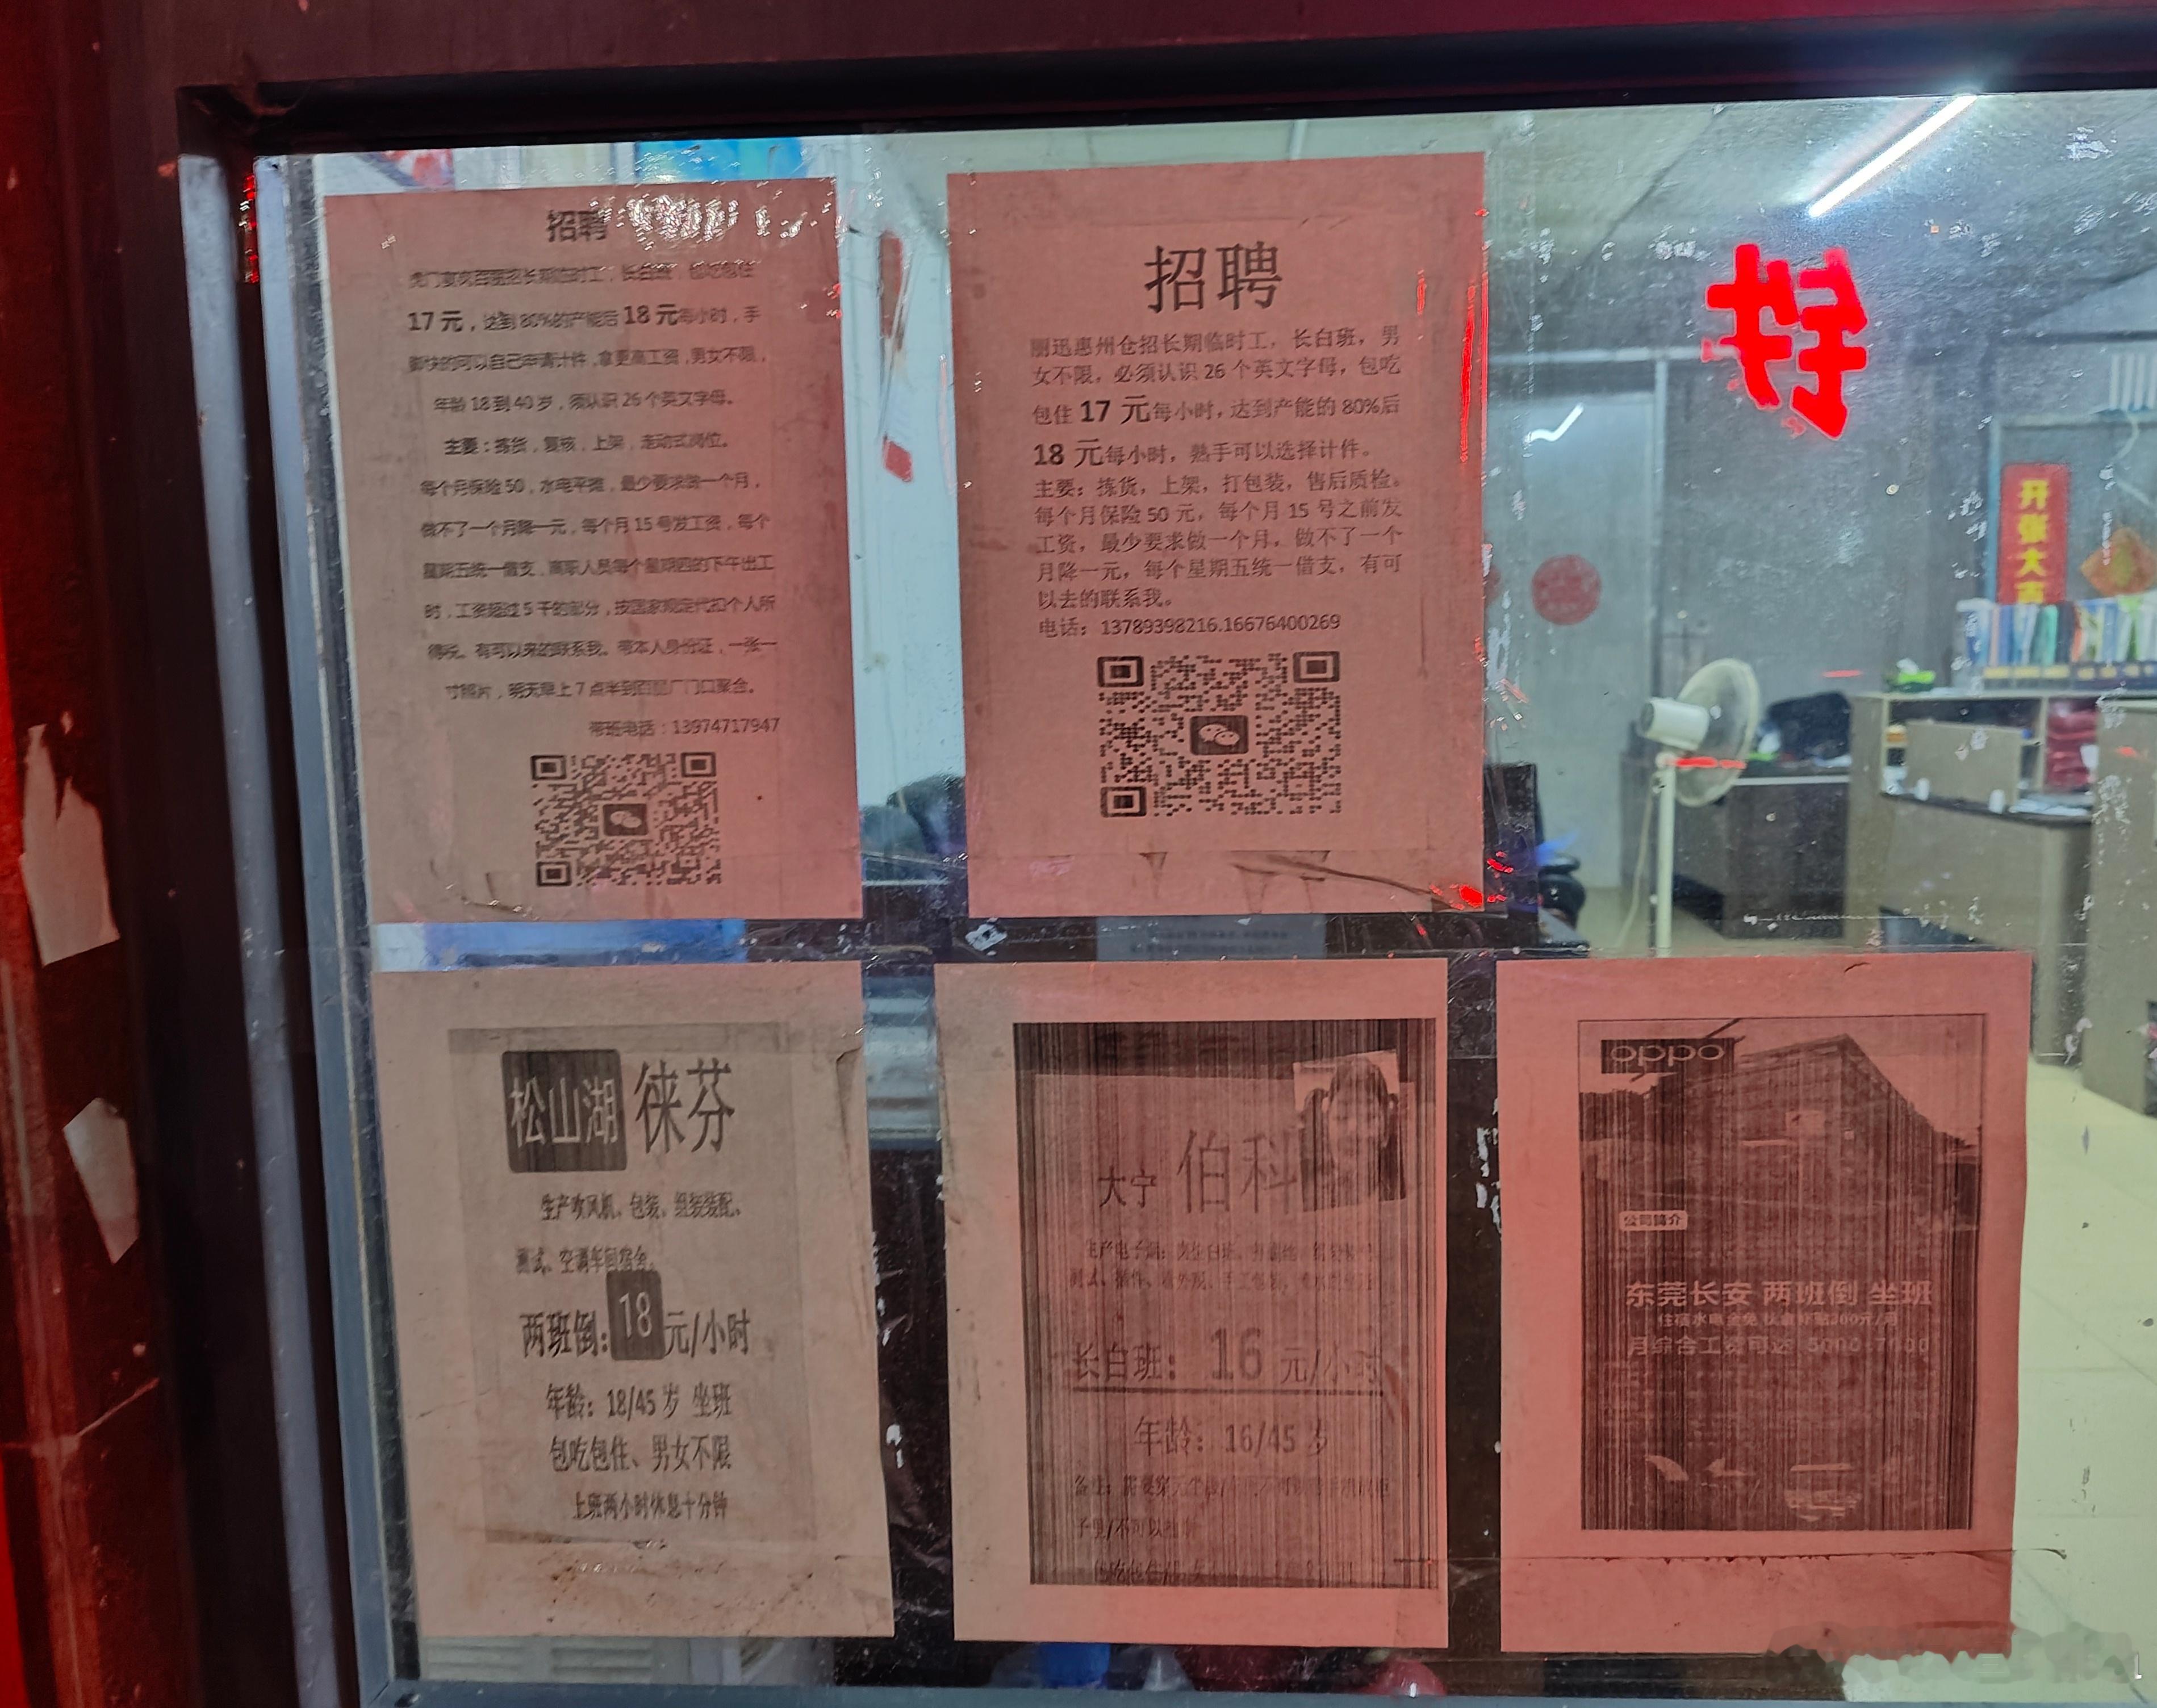 招聘
虎门夏岚百丽招长期临时工，长白班，包吃包住
17 元，达到 80%的产能后 18 元每小时，手
脚快的可以自己申请计件，拿更高工资，男女不限，
年龄 18 到 40 岁，须认识 26 个英文字母。
主要：拣货，复核，上架，走动式岗位。
每个月保险 50，水电平摊，最少要求做一个月，
做不了一个月降一元，每个月 15 号发工资，每个
星期五统一借支，离职人员每个星期四的下午出工
时，工资超过 5 千的部分，按国家规定代扣个人所
得税。有可以来的联系我。带本人身份证，一张一
寸照片，明天早上 7 点半到百丽厂门口聚合。
带班电话：13974717947
招聘
丽迅惠州仓招长期临时工，长白班，男
女不限，必须认识 26 个英文字母，包吃
包住 17 元每小时，达到产能的 80%后
18 元每小时，熟手可以选择计件。
主要：拣货，上架，打包装，售后质检。
每个月保险 50 元，每个月 15 号之前发
工资，最少要求做一个月，做不了一个
月降一元，每个星期五统一借支，有可
以去的联系我。
电话：13789398216.16676400269
开张大吉
松山湖 徕芬
生产吹风机、包装、组装装配、
测试、空调车间宿舍。
两班倒：18元/小时
年龄：18/45 岁 坐班
包吃包住、男女不限
上班两小时休息十分钟
大宁 伯科
长白班： 16 元/小时
年龄：16/45 岁
oppo
公司简介
东莞长安 两班倒 坐班
月综合工资可达 5000-7000